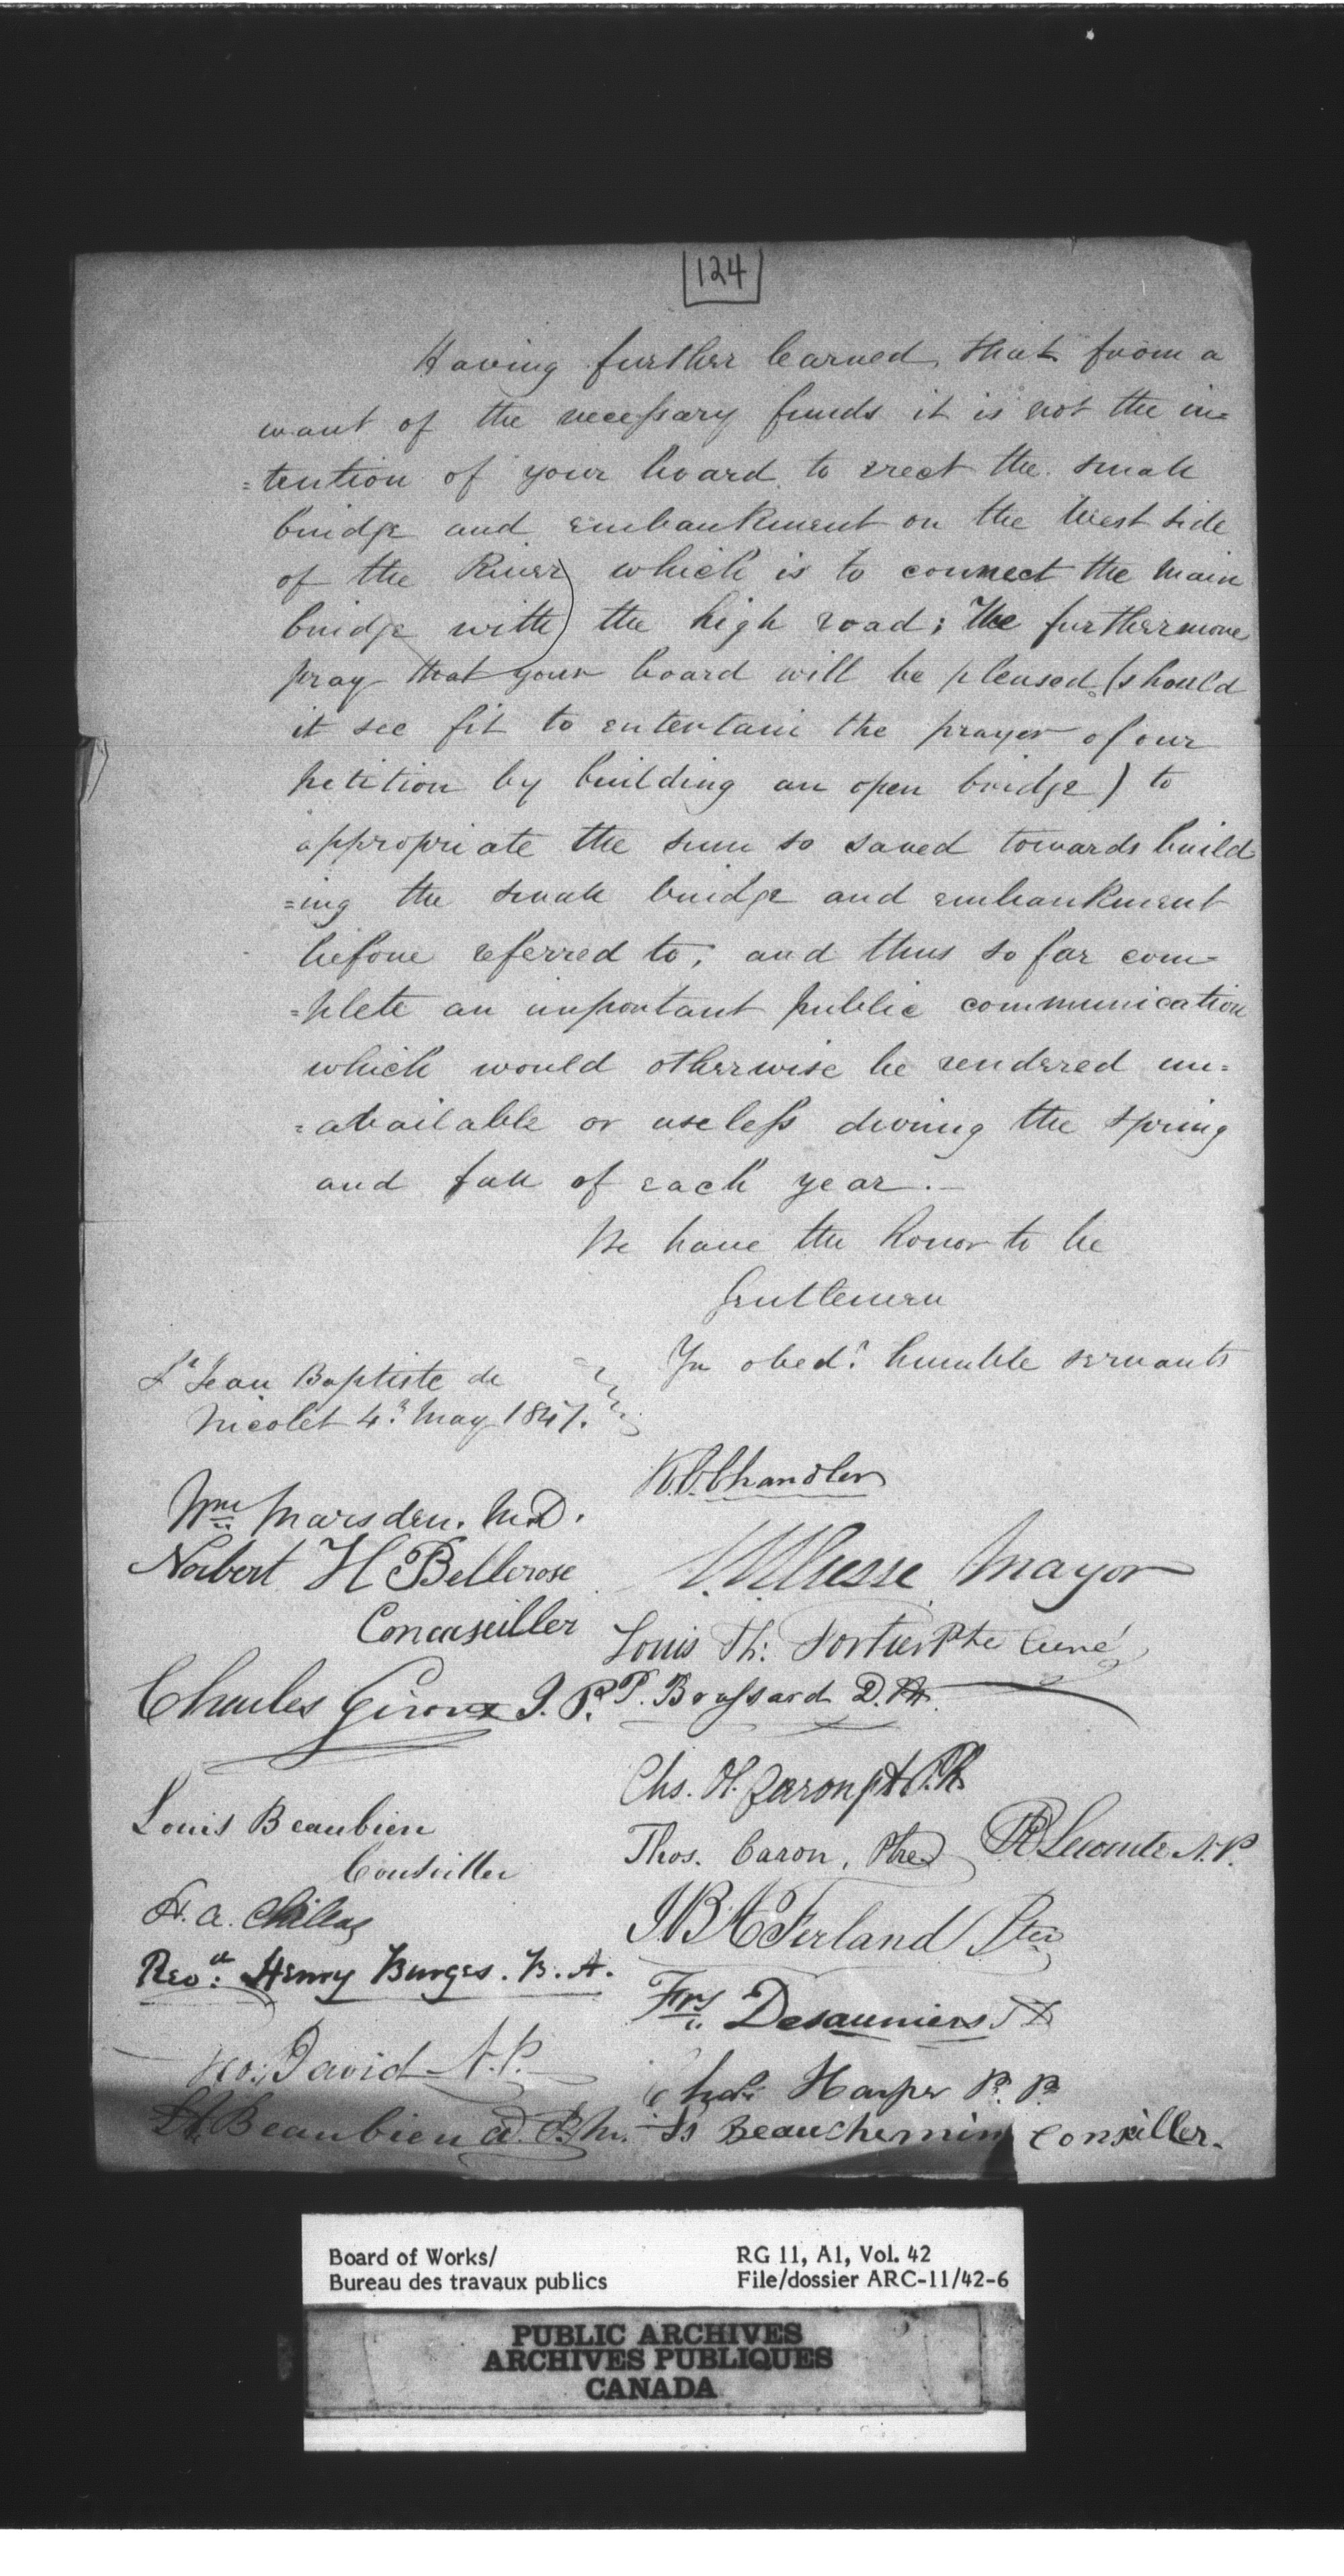 124
Having further learned, that from a
want of the necessary funds it is not the in=
=tention of your board to erect the small
bridge and embankment on the West side
of the River, which is to connect the main
bridge with the high road; We furthermore
pray that your board will be pleased (should
it see fit to entertain the prayer of our
petition by building an open bridge) to
appropriate the sum so saved towards build
=ing the small bridge and embankment
before referred to; and thus so far com=
=plete an important public communication
which would otherwise be rendered un=
=available or useless during the spring
and fall of each year.—
We have the honor to be
Gentlemen
Yr obedt humble servants
St Jean Baptiste de
Nicolet 4th May 1847.
K.C. Chandler
Wm Marsden. M.D.
Norbert H Bellerose
Conceseiller
Mayor
Louis Th: Fortier Ptre Curé
Charles Giroux J.P.
P. Brassard D.
Chs. H.
Louis Beaubien
Conseiller
Thos. Caron, Ptre
Lecomte N.P.
JBA Ferland Ptre
Revd: Henry Burges. B.A.
Frs Desauniers
Geo: David N.P.
Chas Harper P.P.
Beaubien
Is Beauchemin Consiller.
Board of Works/
Bureau des travaux publics
RG 11, A1, Vol. 42
File/dossier ARC-11/42-6
PUBLIC ARCHIVES
ARCHIVES PUBLIQUES
CANADA